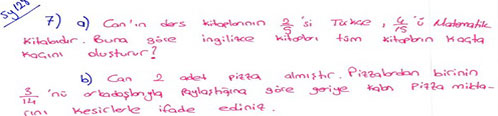 Sy 128
7) a) Can'ın ders kitaplarının 2/5 'si Türkçe, 4/15 'ü Matematik
kitabıdır. Buna göre ingilizce kitapları tüm kitapların kaçta
kaçını oluşturur?
b) Can 2 adet pizza almıştır. Pizzalardan birinin
3/14 'nü arkadaşlarıyla paylaştığına göre geriye kalan pizza mikta-
rını kesirlerle ifade ediniz.